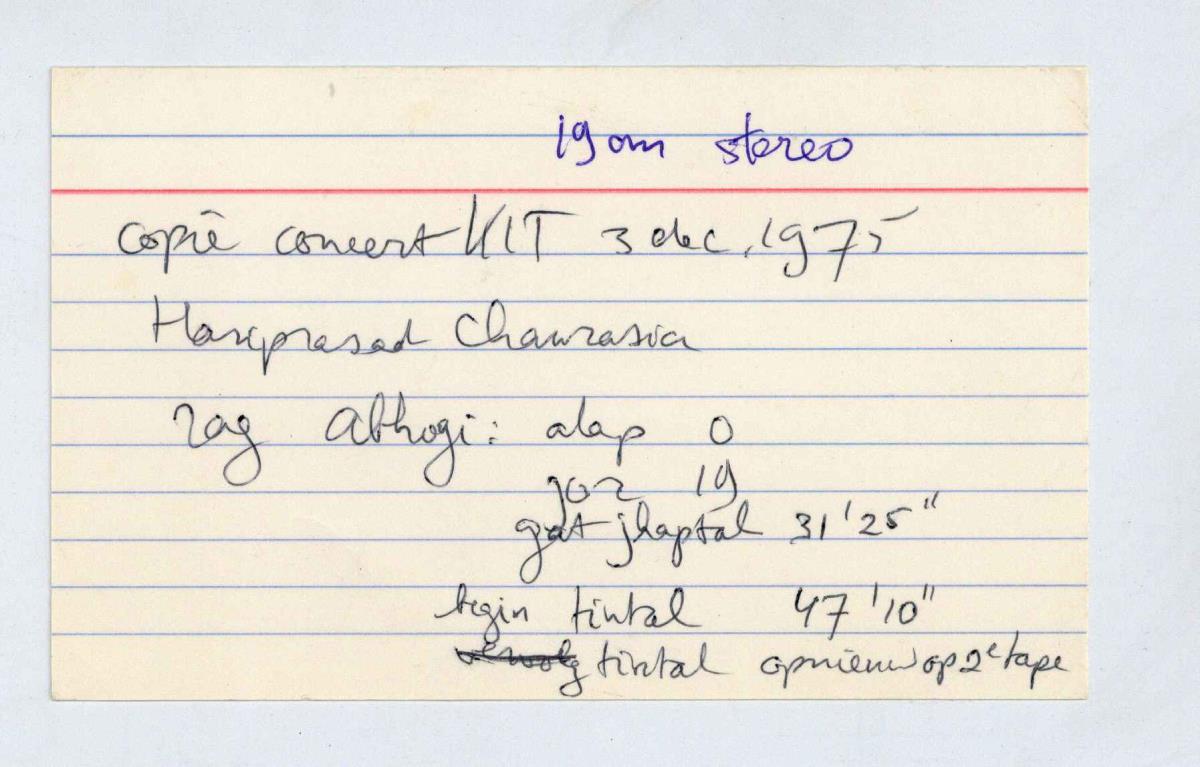 19 cm stereo
copie concert KIT 3 dec. 1975
Hariprasad Chaurasia
rag Abhogi: alap 0
jor 19
gat jhaptal 31'25"
begin tintal 47'10"
tintal opnieuw op 2e tape